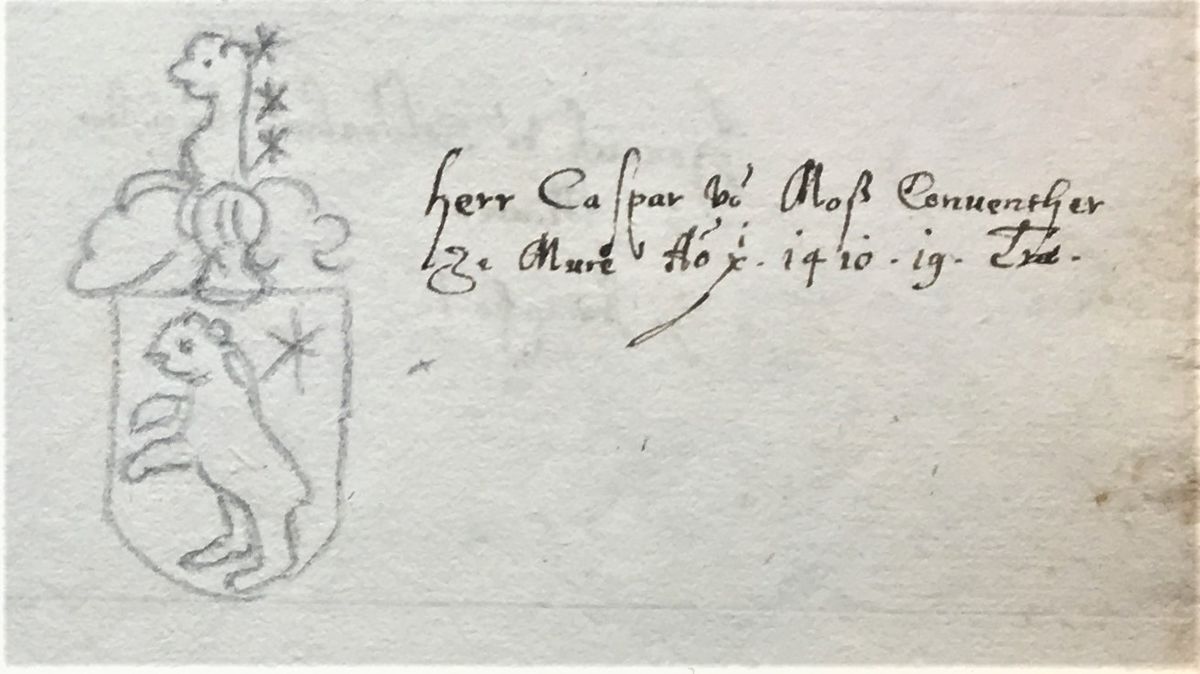 herr Caspar vō Moß Conuenther
Ze Mure Aō x. 1410. 19.